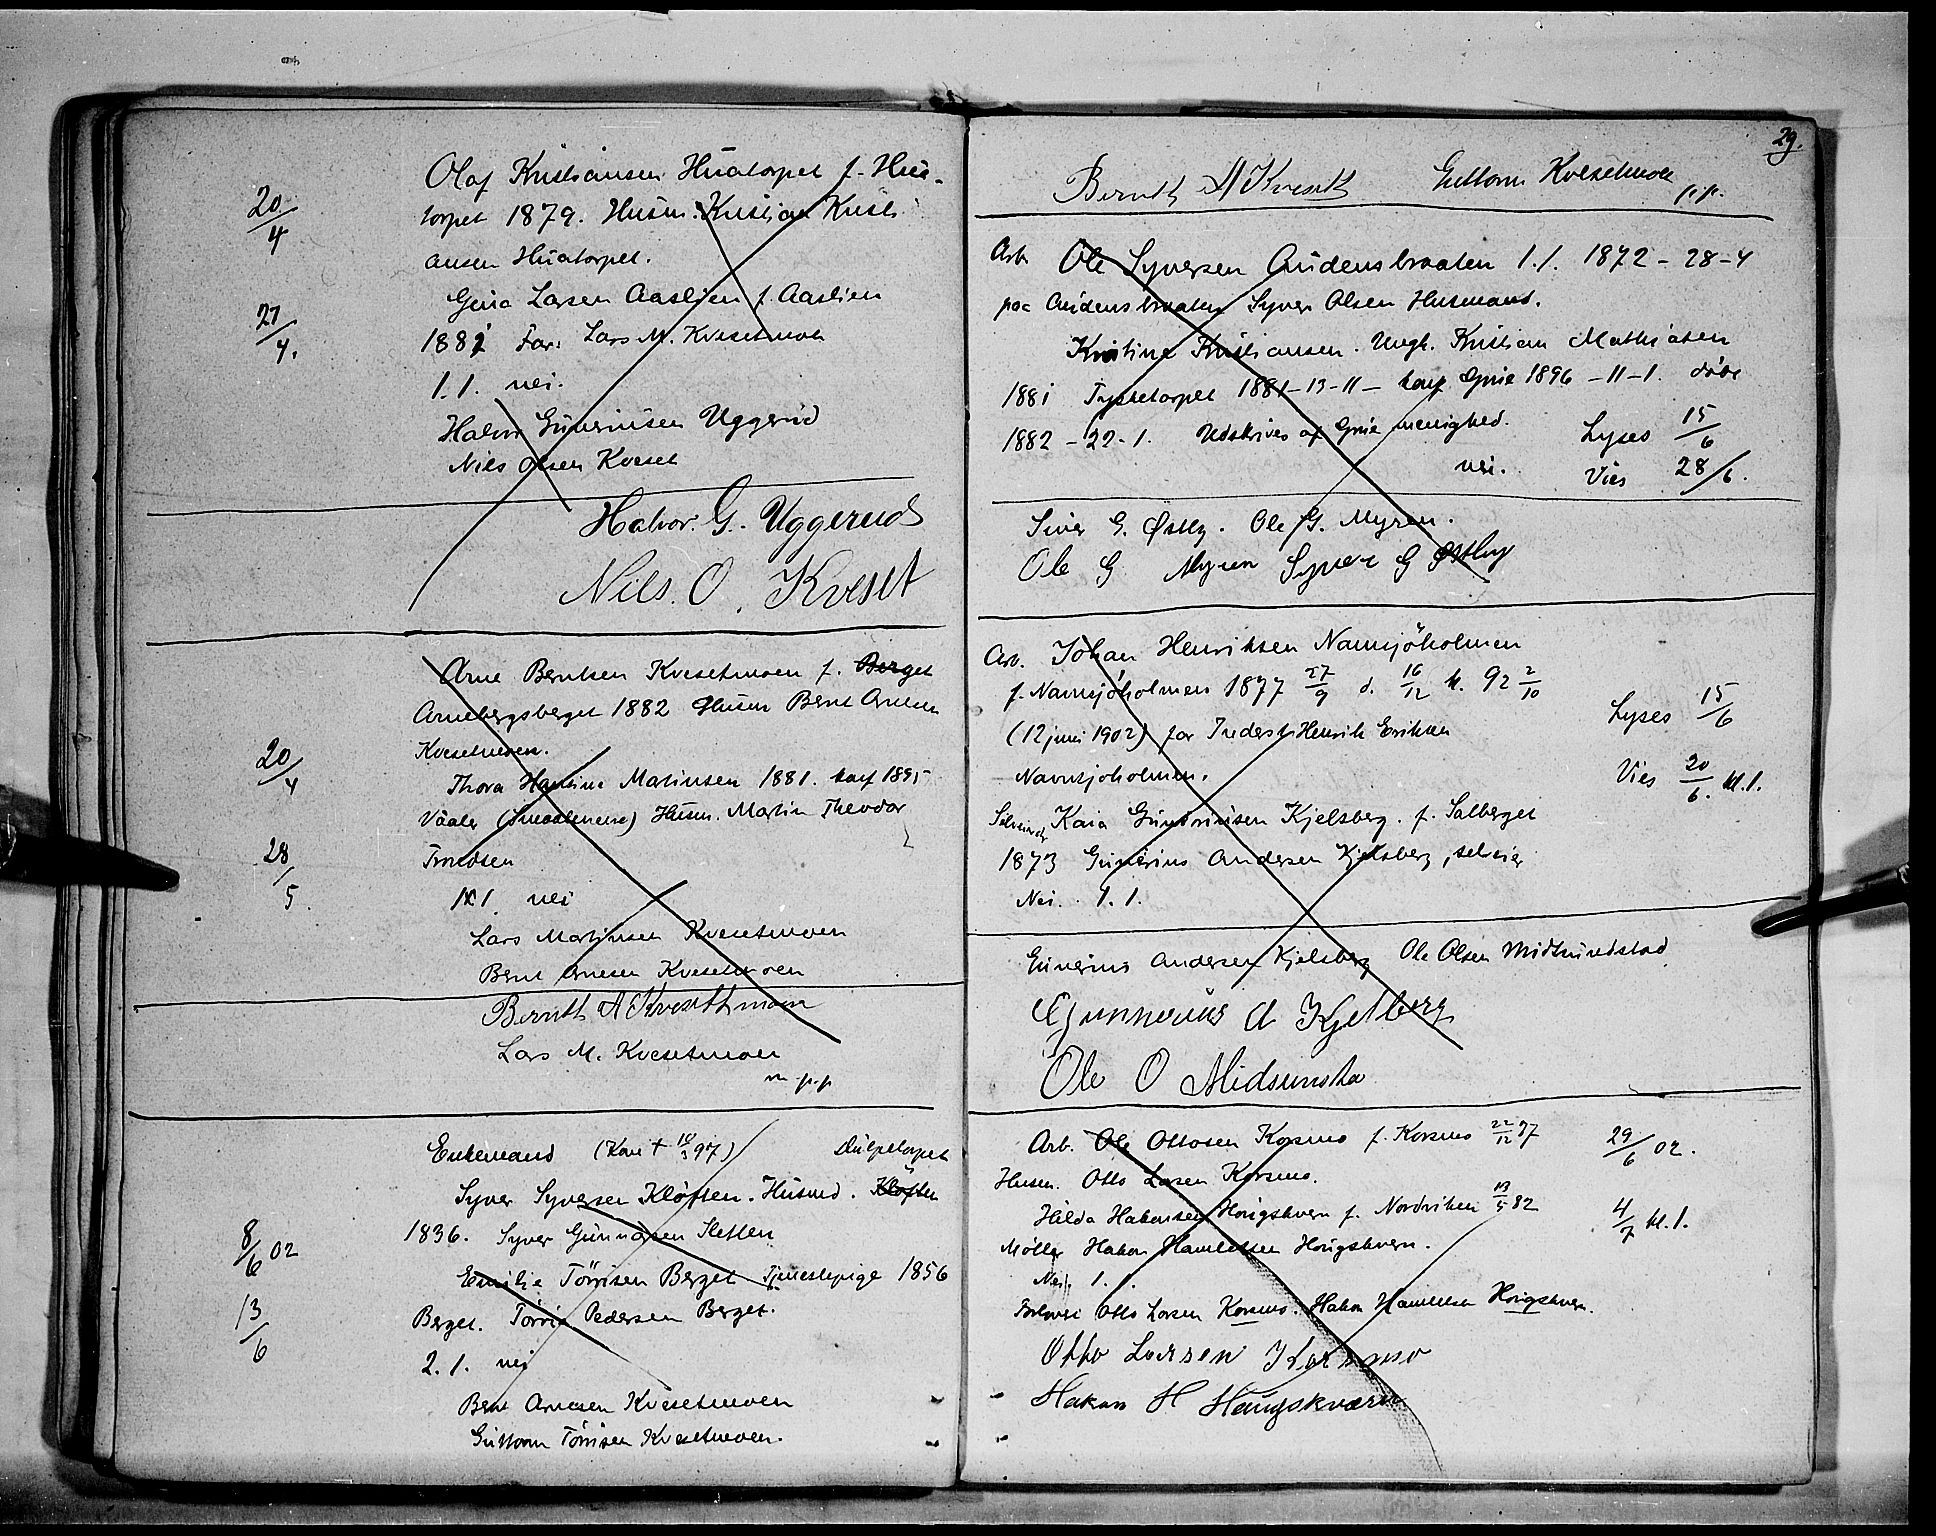 20/4 Olaf Kristiansen Huatorpet f. Hua-
torpet 1879. Husm. Kristian Kristi
ansen Huatorpet.
27/4. Gina Larsen Aaslien f. Aaslien
1881 Far: Lars M. Kvesetmoen
1.1. nei.
Halvor Guneriusen Uggerud
Nils Olsen Kveset
Halvor. G. Uggerud
Nils. O. Kveset
Arne Berntsen Kvesetmoen f. Berget
Arnebergsberget 1882 Husm Bernt Arnesen
Kvesetmoen.
20/4 Thora Martinsen 1881. konf 1895
Vaaler Husm. Martin Theodor
28/5. Trondsen
1.1. nei
Lars Martinsen Kvesetmoen
Bernt Arnesen Kvesetmoen
Bernth A Kvesethmoen
Lars M. Kvesetmoen
m.p.p
Enkemand (Kone † 97)
Syver Syversen Kløften. Husmd. Kløften
8/6 02 1836. Syver Gunnarsen Sletten
Emilie Törrisen Berget Tjenestepige 1856
13/6 Berget. Törris Pedersen Berget.
2.1. nei
Bernt Arnesen Kvesetmoen
Guttorm Törrisen Kvesetmoen.
29.
Bernth A Kveseth Guttorm Kvesetmoen
p.p.
Arb. Ole Syversen Audensbraaten 1.1. 1872-28-4
paa Audensbraaten Syver Olsen Husmand.
Kristine Kristiansen. Ungk. Kristian Mathiasen
1881 Tysketorpet 1881-13-11- konf. Grue 1896-11-1. døbt
1882-22-1. Udskrives af Grue menighed. Lyses 15/6
nei. Vies 28/6.
Siver G. Østby. Ole G. Myren.
Ole G Myren Syver G Østby
Arb. Johan Henriksen Namsjöholmen
f. Namsjöholmen 1877 27/9 d. 16/12 k. 92 2/10
Lyses 15/6
(12 juni 1902) far Henrik Eriksen
Namsjoholmen. Vies 20/6. kl. 1.
Kaia Gunneriusen Kjelsberg. f. Salberget
1873 Gunerius Andersen Kjelsberg, selveier
Nei. 1.1.
Gunerius Andersen Kjelsberg Ole Olsen Midtsundstad
Gunnerius A Kjelsberg
Ole O Midsunsta
Arb. Ole Ottosen Korsmo f. Korsmo 22/12 77 29/6 02.
Husm. Otto Larsen Korsmo.
Hilda Hakonsen Hougskvern f. Nordviken 13/5 82 4/7 kl. 1.
Møller Hakon Hamletsen Hougskvern.
Nei. 1.1.
Forlovere Otto Larsen Korsmo. Hakon Hamletsen Hougskvern.
Otto Larsen Korsmo
Hakon H Haugskværn